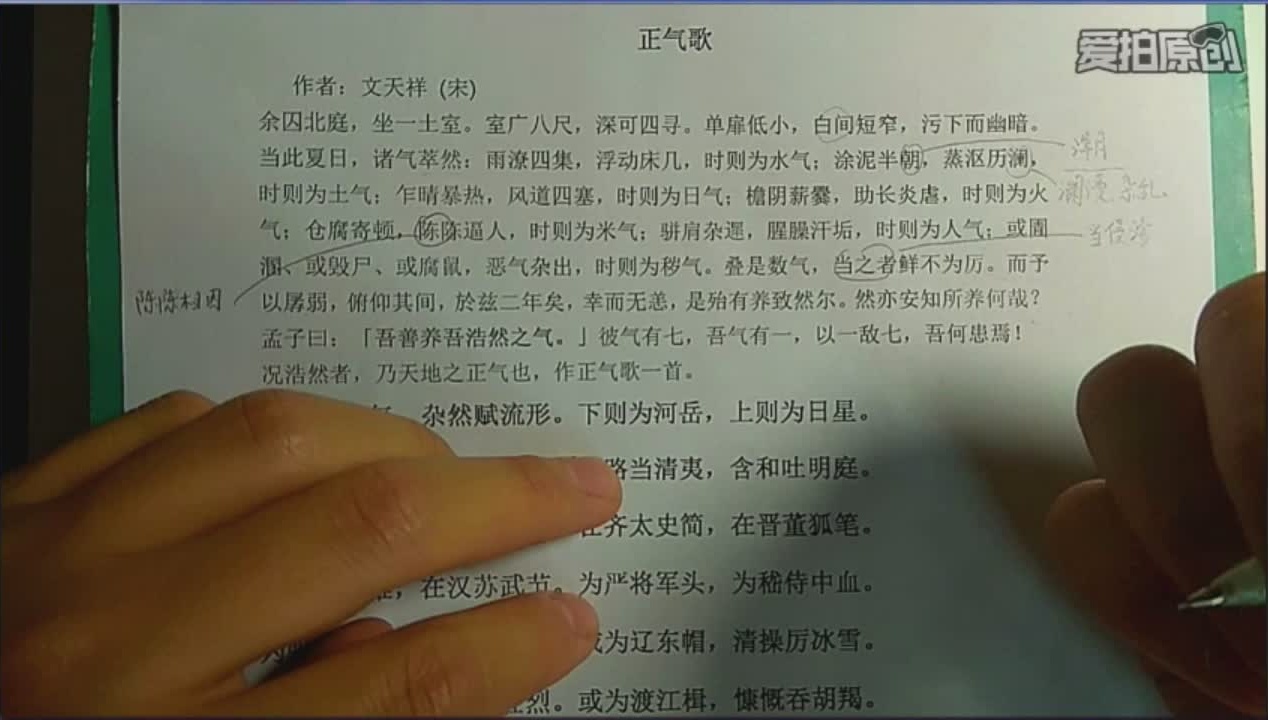 爱拍原创
正气歌
作者：文天祥 (宋)
余囚北庭，坐一土室。室广八尺，深可四寻。单扉低小，白间短窄，污下而幽暗。
当此夏日，诸气萃然：雨潦四集，浮动床几，时则为水气；涂泥半朝，蒸沤历澜，
时则为土气；乍晴暴热，风道四塞，时则为日气；檐阴薪爨，助长炎虐，时则为火
气；仓腐寄顿，陈陈逼人，时则为米气；骈肩杂遝，腥臊汗垢，时则为人气；或圊
溷、或毁尸、或腐鼠，恶气杂出，时则为秽气。叠是数气，当之者鲜不为厉。而予
以孱弱，俯仰其间，於兹二年矣，幸而无恙，是殆有养致然尔。然亦安知所养何哉？
孟子曰：「吾善养吾浩然之气。」彼气有七，吾气有一，以一敌七，吾何患焉！
况浩然者，乃天地之正气也，作正气歌一首。
杂然赋流形。下则为河岳，上则为日星。
路当清夷，含和吐明庭。
在齐太史简，在晋董狐笔。
在汉苏武节。为严将军头，为嵇侍中血。
或为辽东帽，清操厉冰雪。
烈。或为渡江楫，慷慨吞胡羯。
潮
澜漫 杂乱
陈陈相因